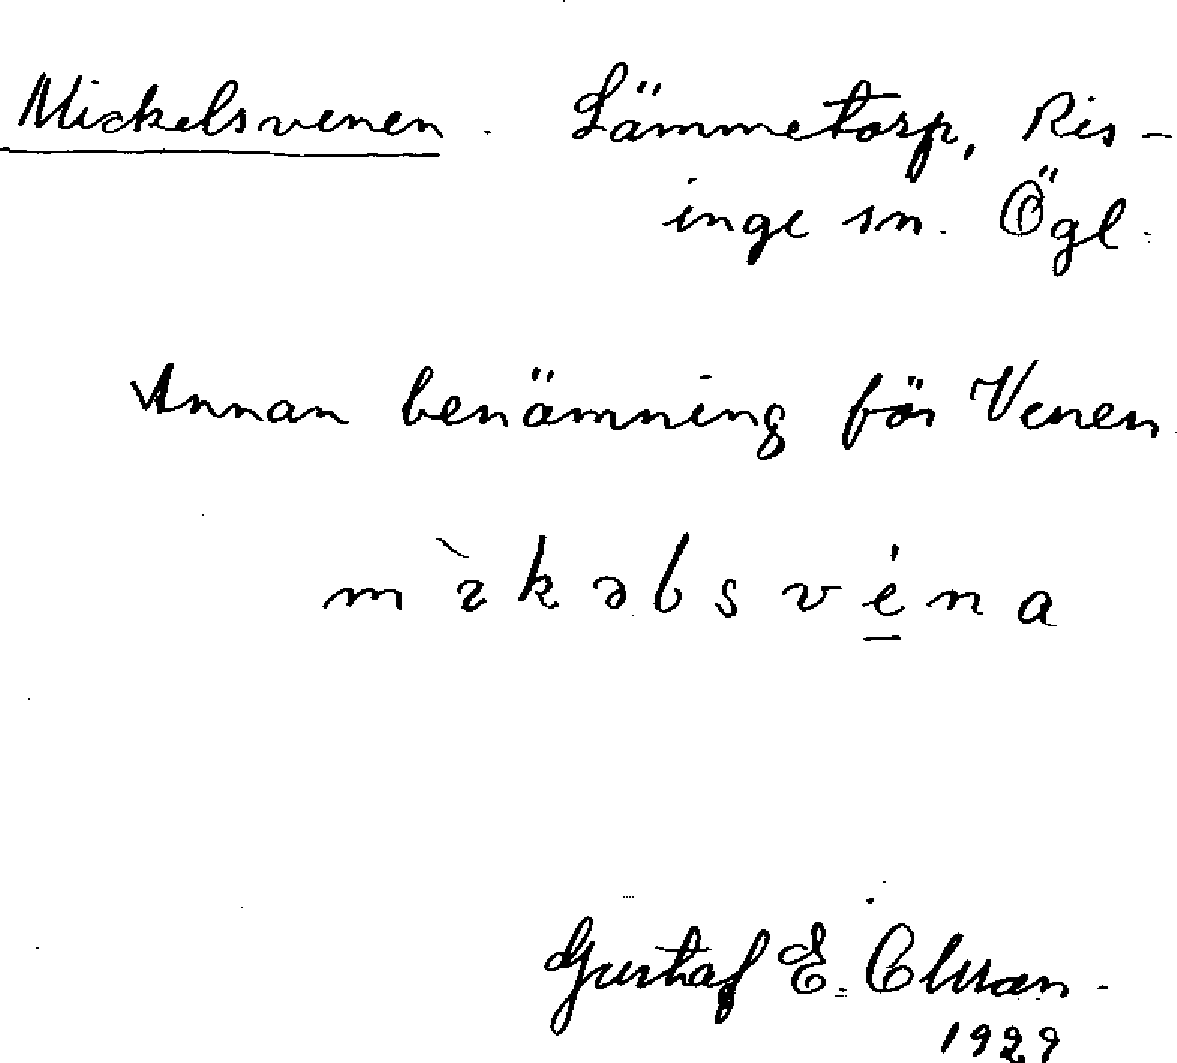 Mickelsvenen. Lämmetorp, Ris-
inge sn. Ögl.
Annan benämning för Venen
mìkəlsvéna
Gustaf E. Olsson.
1929